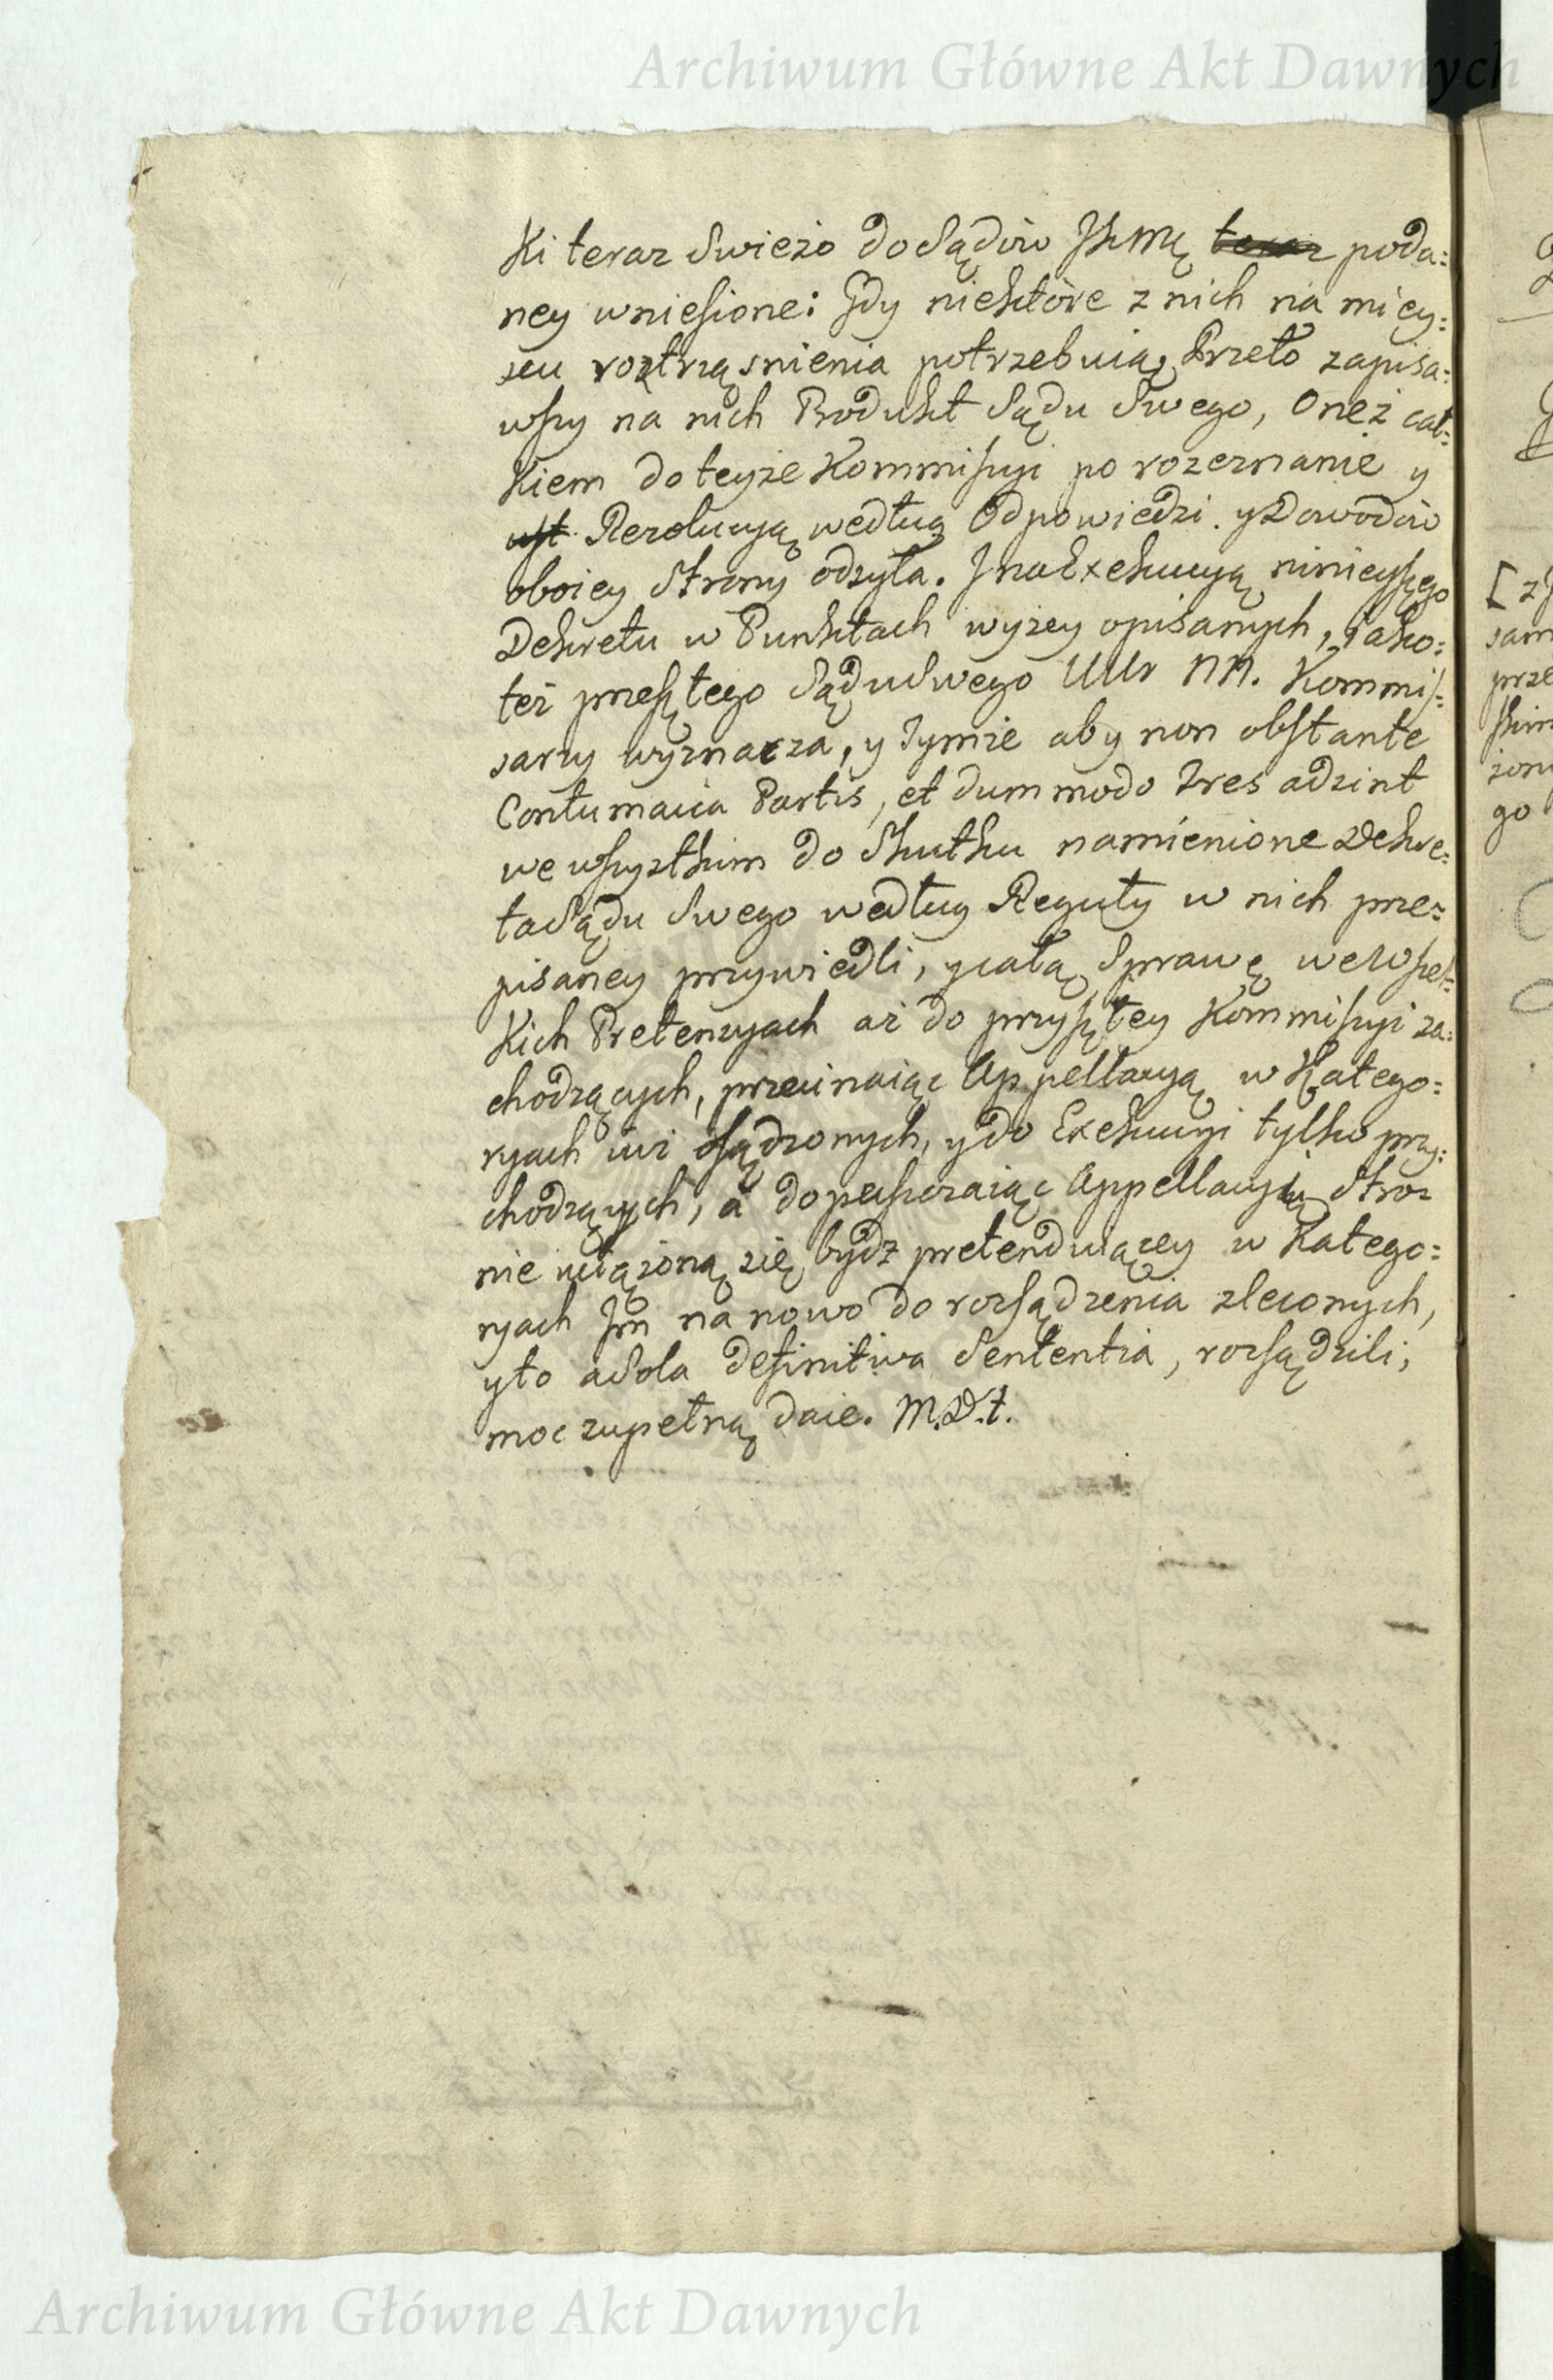 Archiwum Główne Akt Dawnych
ki teraz swieżo do Sądów JKMę teraz poda=
ney wniesione: Gdy niektóre z nich na miey=
scu roztrząsnienia potrzebuią, Przeto zapisa=
wszy na nich Produkt Sądu Swego, Oneż cał=
kiem do teyże Kommissyi po rozeznanie y
Rezolucyą według Odpowiedzi y Dowodów
oboiey Strony odsyła. J na Exekucyą ninieyszego
Dekretu w Punktach wyżey opisanych, jako=
też przeszłego Sądu Swego UUr NN. Kommis=
sarzy wyznacza, y Tymże aby non obstante
Contumacia Partis, et dummodo Tres adsint
we wszystkim do Skutku namienione Dekre=
ta Sądu Swego według Reguły w nich prze=
pisaney przywiedli, y całą Sprawę we Wszel=
kich Pretensyach aż do przyszłey Kommissyi za=
chodzących, przecinaiąc Appellacyą w Katego=
ryach iuż osądzonych, y do Exekucyi tylko przy=
chodzących, a dopuszczaiąc Appellacyią Stro=
nie uciążoną się bydz pretenduiącey w Katego=
ryach Jm na nowo do rozsądzenia zleconych,
y to a Sola definitiva Sententia, rozsądzili,
moc zupełną daie. M.D.t.
[ z
sam
prze
skim
go
Archiwum Główne Akt Dawnych